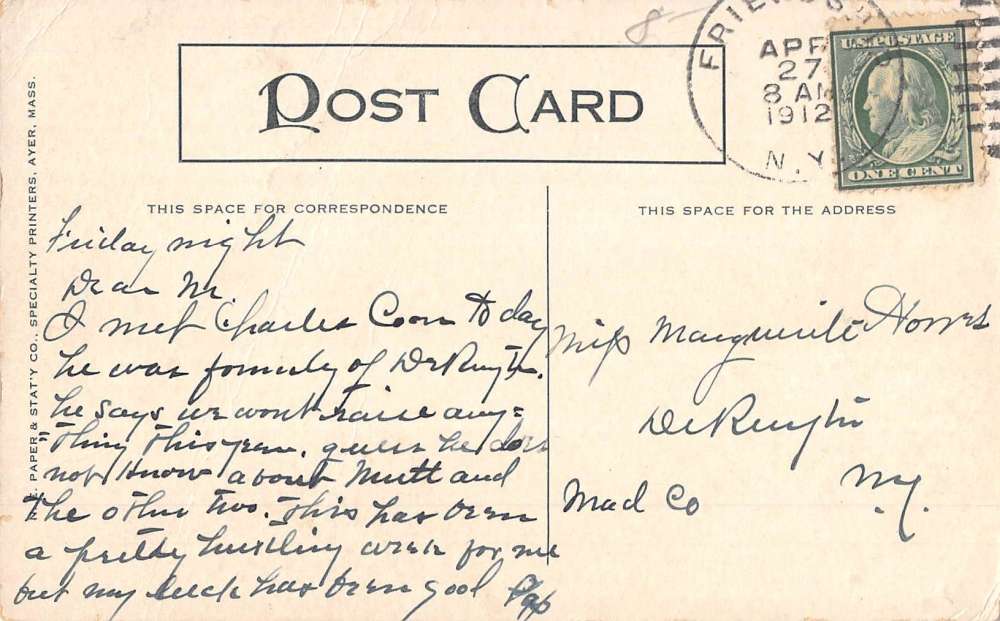 POST CARD
FRIENDSHIP
APR
27
8 AM
1912
N.Y.
U.S. POSTAGE
ONE CENT
PAPER & STAT'Y CO., SPECIALTY PRINTERS, AYER, MASS.
THIS SPACE FOR CORRESPONDENCE
Friday night
Dear M.
I met Charles Coon to day
he was formerly of DeRuyter.
he says we wont raise any=
=thing this year. guess he does
not know about Mutt and
the other two. This has been
a pretty hustling week for me
but my luck has been good Pap
THIS SPACE FOR THE ADDRESS
Miss Marguerite
DeRuyter
Mad Co
N.Y.